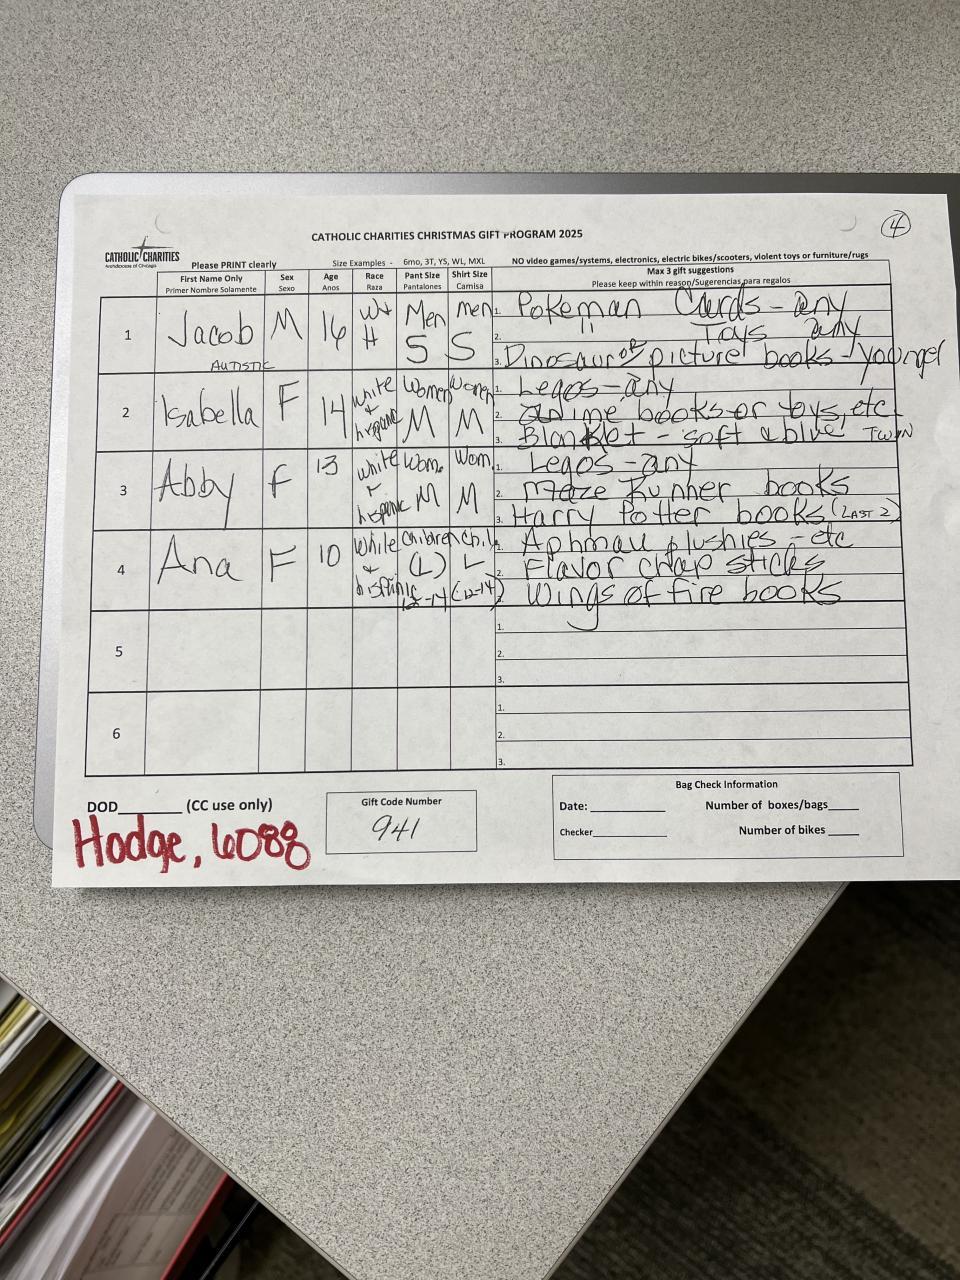 4
CATHOLIC CHARITIES CHRISTMAS GIFT PROGRAM 2025
CATHOLIC CHARITIES
Archdiocese of Chicago
Please PRINT clearly
Size Examples - 6mo, 3T, YS, WL, MXL
NO video games/systems, electronics, electric bikes/scooters, violent toys or furniture/rugs
First Name Only
Primer Nombre Solamente
Sex
Sexo
Age
Anos
Race
Raza
Pant Size
Pantalones
Shirt Size
Camisa
Max 3 gift suggestions
Please keep within reason/Sugerencias para regalos
1
Jacob
AUTISTIC
M
16
Wt
H
Men
S
men
S
1. Pokeman Cards - any
2. " Toys any
3. Dinosaur or picture books - younger
2
Isabella
F
14
white
+
hispanic
Women
M
Women
M
1. Legos - any
2. anime books or toys, etc
3. Blanket - soft & blue TWIN
3
Abby
F
13
white
+
hispanic
Wom.
M
Wom.
M
1. Legos - any
2. Maze Runner books
3. Harry Potter books (LAST 2)
4
Ana
F
10
White
+
hispanic
Children
(L)
12-14
Chil.
L
(12-14)
1. Aphmau plushies - etc
2. Flavor chap sticks
3. Wings of fire books
5
1.
2.
3.
6
1.
2.
3.
DOD_______ (CC use only)
Hodge, 6088
Gift Code Number
941
Bag Check Information
Date: ___________ Number of boxes/bags____
Checker___________ Number of bikes ____